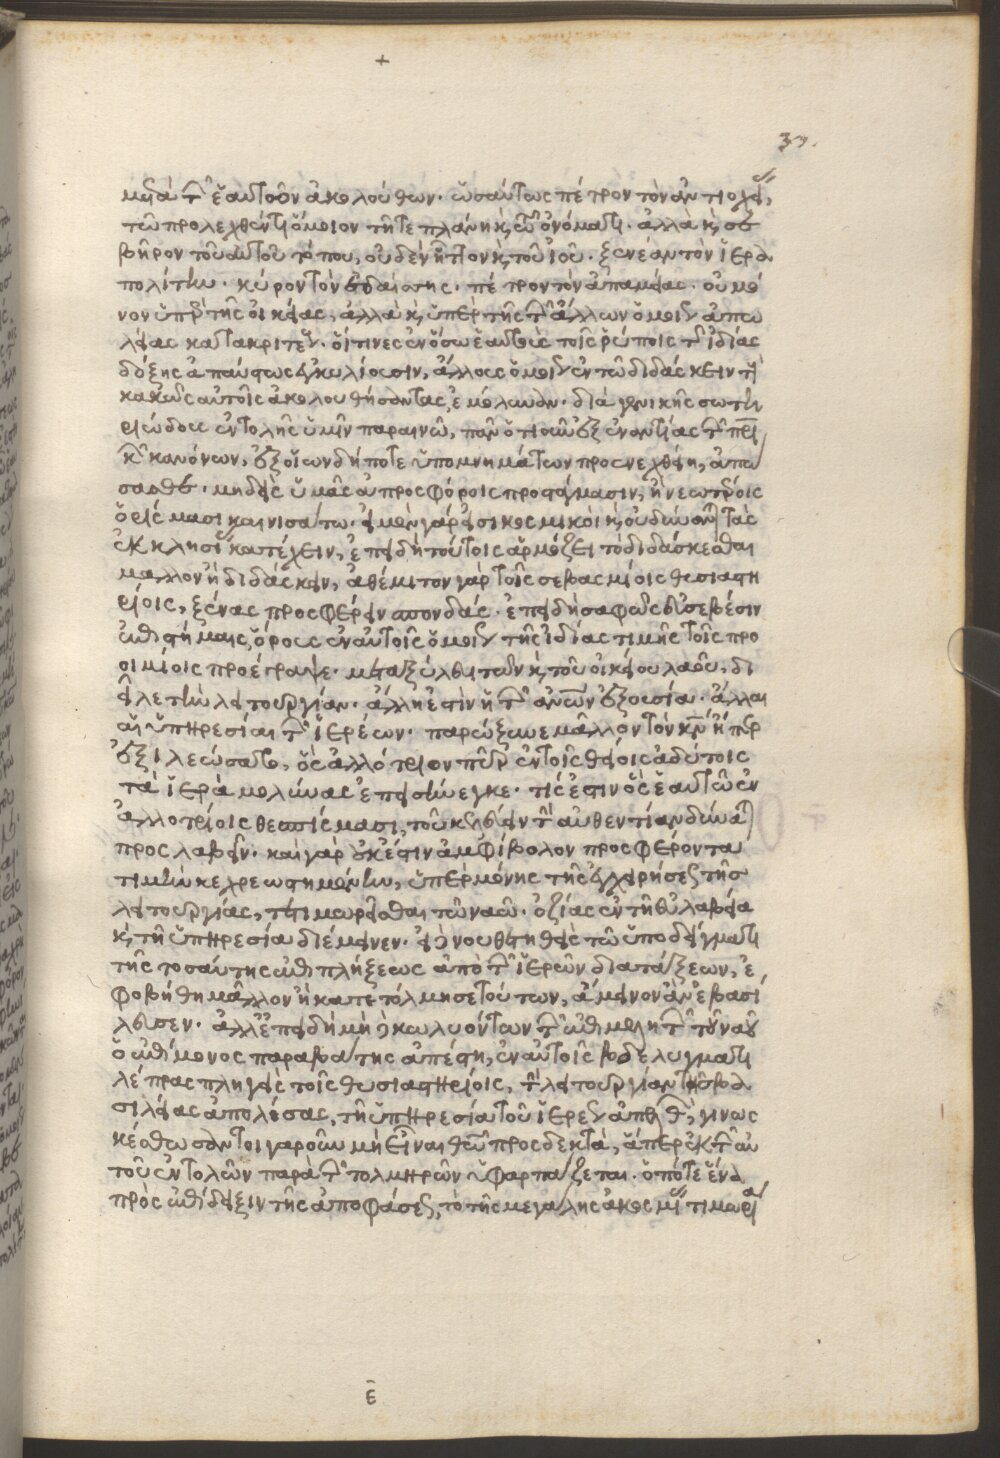 μετὰ τῶν ἑαυτοῦ ἀκολούθων. ὡσαύτως πέτρον τὸν ἀντιοχείας
τῶ προλεχθέντι ὅμοιον τῆ τε πλάνη καὶ τῶ ὀνόματι. ἀλλὰ καὶ
βῆρον τοῦ αὐτοῦ τόπου, οὐδὲν ἧττον καὶ τοῦ ἰοῦ. ξενέαν τὸν ἱερα
πολίτην. κύρον τὸν ἐδαίσης. πέτρον τὸν ἀπαμείας. οὐ μό
νον ὑπὲρ τῆς οἰκείας, ἀλλὰ καὶ ὑπὲρ τῆς τῶν ἄλλων ὁμοῦ ἀπω
λείας κατακριτέον. οἵτινες ἐν ὅσω ἑαυτοὺς τοῖς ῥύποις τῆς ἰδίας
δόξης ἀπαύστως ἐγκυλίουσιν, ἄλλους ὁμοῦ ἐν τῶ διδάσκειν
κακῶς αὐτοῖς ἀκολουθήσαντας, ἐμόλυναν. διὰ γενικῆς σωτη
ριώδους ἐντολῆς ὑμῖν παραινῶ, πᾶν ὁτιοῦν ἐξ ἐναντίας τῶν πατρι
κῶν κανόνων, ἐξ οἵων δήποτε ὑπομνημάτων προσνεχθείη, ἀπώ
σασθε. μηδεὶς ὑμᾶς ἀπροσφόροις προστάγμασιν, ἢ νεωτέροις
ὁρίσμασι καινισάτω. εἰ μὲν γάρ εἰσι κοσμικοὶ καὶ οὐ δύνανται τὰς
ἐκκλησίας κατέχειν, ἐπειδὴ τούτοις ἁρμόζει τὸ διδάσκεσθαι
μᾶλλον ἢ διδάσκειν, ἀθέμιτον γὰρ τοῖς σεβασμίοις θυσιαστη
ρίοις, ξένας προσφέρειν σπονδάς. ἐπειδὴ σαφῶς
ἐπιστήμαις, ὅρους ἐν αὐτοῖς ὁμοῦ τῆς ἰδίας τιμῆς τοῖς προ
οιμίοις προέτραψε. μεταξὺ λευιτῶν καὶ τοῦ οἰκείου λαοῦ, δι
εῖλε τὴν λειτουργίαν. ἄλλη ἐστὶν ἡ τῶν ἀνθρώπων ἐξουσία. ἄλλαι
αἱ ὑπηρεσίαι τῶν ἱερέων. παρώξυνε μᾶλλον τὸν κύριον ἤπερ
ἐξιλεώσατο, ὃς ἀλλότριον πῦρ ἐν τοῖς θείοις ἀδύτοις
τὰ ἱερὰ μολύνας ἐπεισήνεγκε. τίς ἐστιν ὃς ἑαυτῶ ἐν
ἀλλοτρίοις θεσπίσμασι, τοῦ κελεύειν τὴν αὐθεντίαν δύναται
προσλαβεῖν. καὶ γὰρ οὐκ ἔστιν ἀμφίβολον προσφέροντα
τιμὴν κεχρεωστημένην, ὑπὲρ μόνης τῆς ἐγχειρήσεως τῆς
λειτουργίας, τετιμωρεῖσθαι τῶ ναῶ. ὀζίας ἐν τῆ εὐλαβεία
καὶ τῆ ὑπηρεσία διέμεινεν. εἰ νουθετηθεὶς τῶ ὑποδείγματι
τῆς τοσαύτης ἐπιπλήξεως ἀπὸ τῶν ἱερῶν διατάξεων, ἐ
φοβήθη μᾶλλον ἢ κατετόλμησε τούτων, ἄμεινον ἂν ἐβασί
λευσεν. ἀλλ' ἐπειδὴ μὴ
ὁ ἐπίμονος παραβάτης ἀπέστη, ἐν αὐτοῖς βδελύγματι
λέπρας πληγεὶς τοῖς θυσιαστηρίοις, τὴν λειτουργίαν τῆς βα
σιλείας ἀπολέσας, τῆ ὑπηρεσία τοῦ ἱερέως ἀπεβλήθη, γινωσ
κέσθωσαν τοιγαροῦν μὴ εἶναι θεῶ προσδεκτὰ, ἅπερ ἐκ τῶν αὐ
τοῦ ἐντολῶν παρὰ τῶν τολμηρῶν ὑφαρπάζεται. ὁπότε ἕνα
πρὸς ἐπίδειξιν τῆς ἀποφάσεως, τὸ τῆς μεγάλης ἀκοσμίας τιμωρία
ε̄